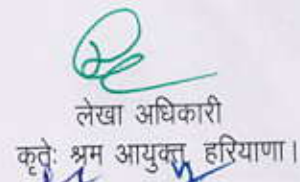 लेखा अधिकारी
कृतेः श्रम आयुक्त, हरियाणा।